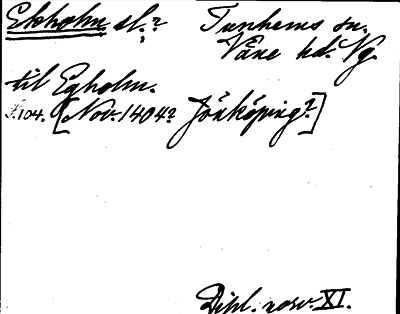 Ekholm el.? Tunhems sn.
Väne hd. Vg.
til Egholm.
S.104. [Nov. 1404? Jönköping?]
Dipl. norv. XI.